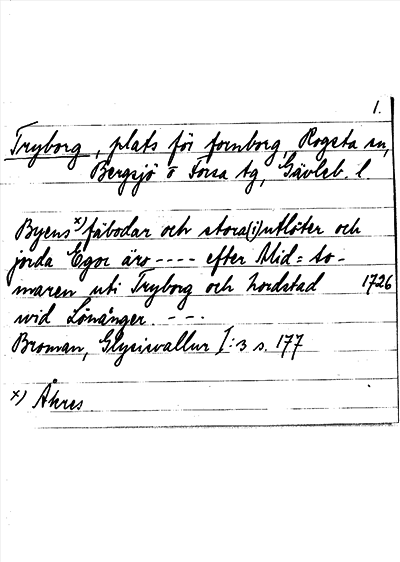 1.
Tryborg, plats för fornborg, Rogsta sn,
Bergsjö o Forsa tg, Gävleb. l.
Byens x) fäbodar och stora(i) utlöter och
jorda Egor äro ---- efter Mid= so-
maren uti Tryborg och Nordstad 1726
wid Lönånger. ---.
Broman, Glysisvallur I:3 s. 177
x) Åkres